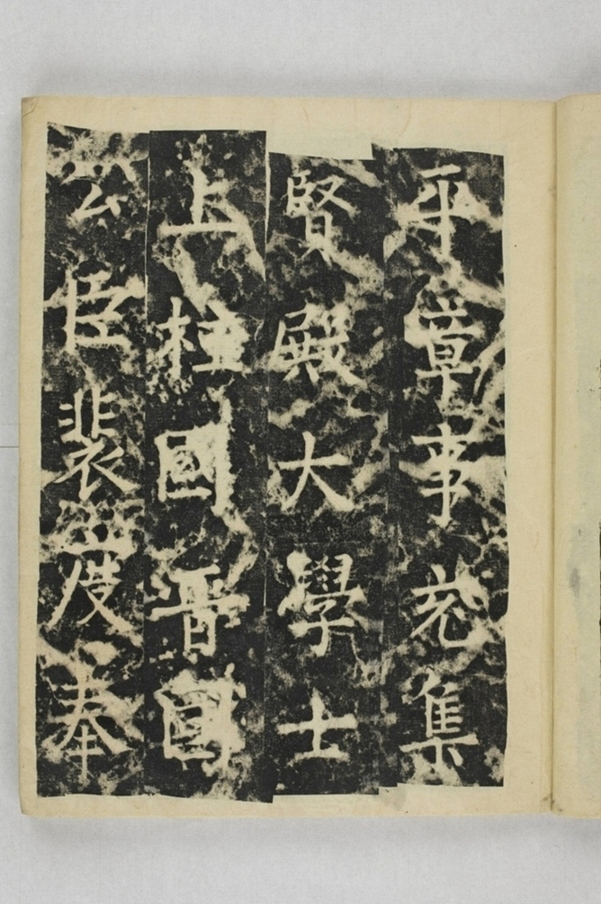 平章事充集
賢殿大學士
上柱國晉國
公臣裴度奉